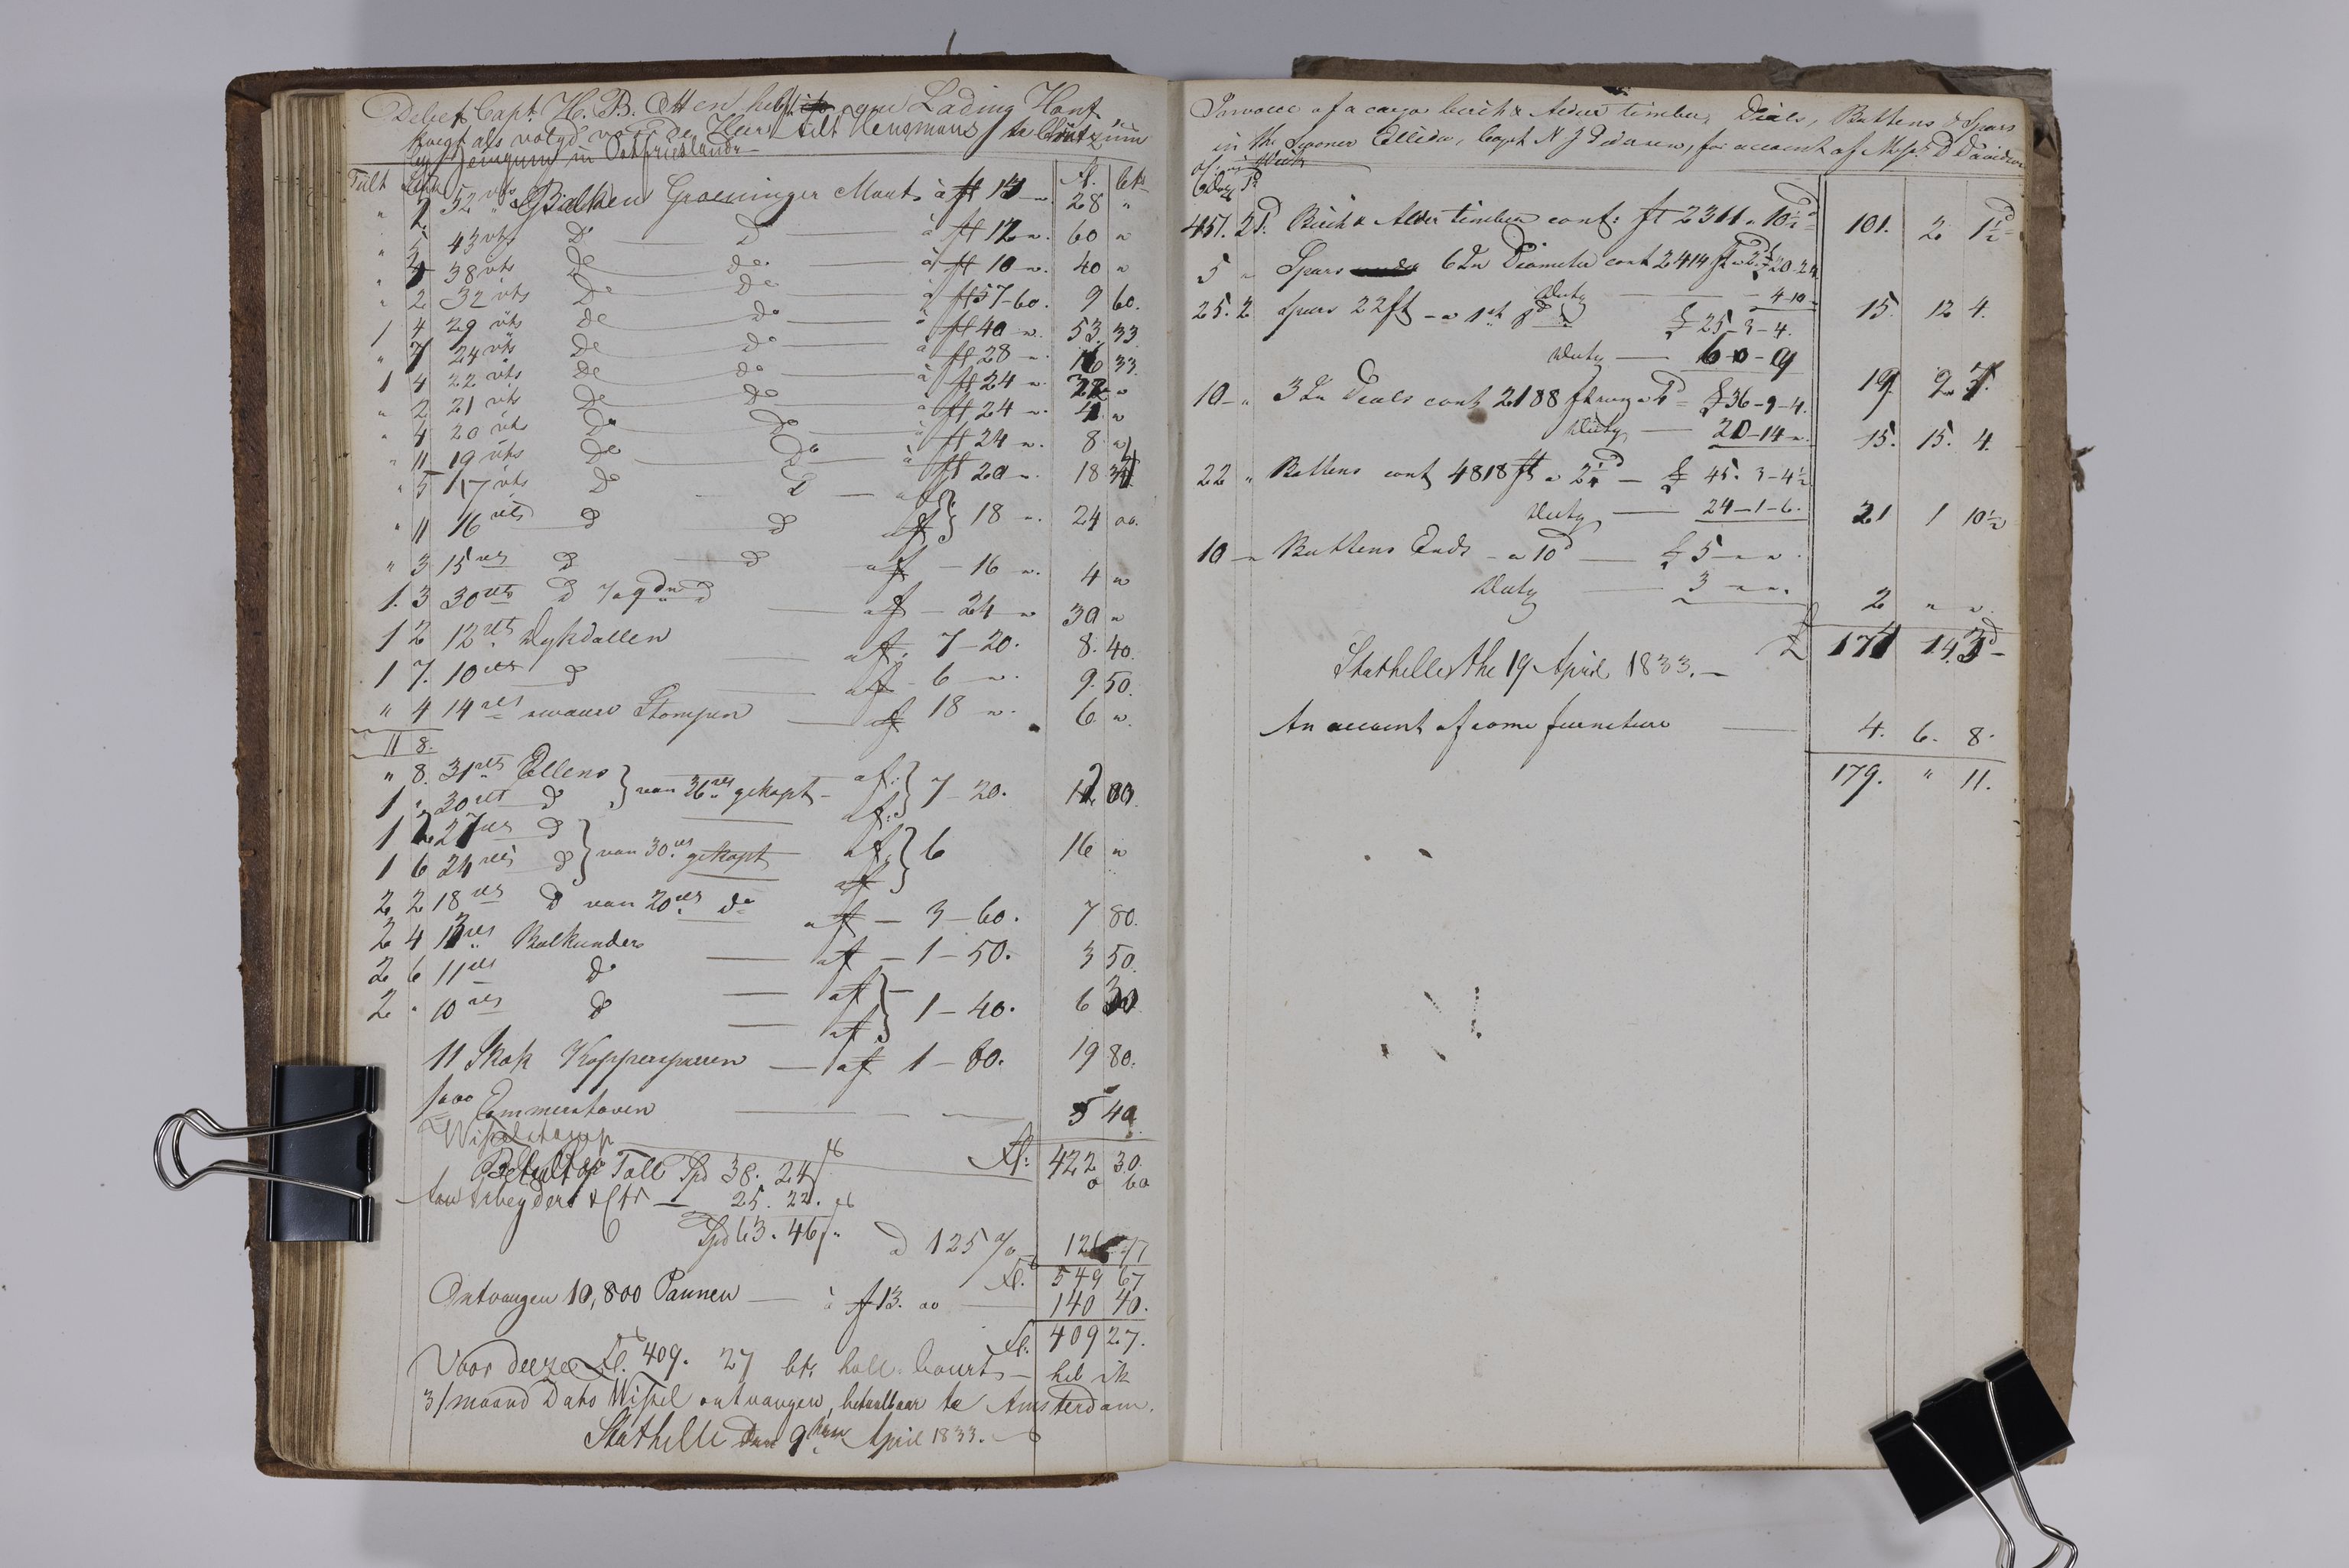 Debet Capt. H. B. Otten heeft een Lading Hont
kregt als volgd voor den Heer Tilt Hensmans te
by Jemgum in Ostfrieslande
Tült Stük fl. ets
" 7 52 vts Balken Groeninger Maat à ff 14 " 28 "
" 5 43 vts Do Do à ff 12 " 60 "
" 4 38 vts Do Do à ff 10 " 40 "
" 2 32 vts Do Do à ff 57-60. 9 60.
1 4 29 vts Do Do à ff 40 " 53. 33
" 7 24 vts Do Do à ff 28 " 16 33.
1 4 22 vts Do Do à ff 24 " 32 "
" 2 21 vts Do Do à ff 24 " 4 "
" 4 20 vts Do Do à ff 24 " 8 "
" 11 19 vts Do Do à ff 20 " 18 34
" 5 17 vts Do Do
" 11 16 vts Do Do 18 " 24 00.
" 3 15 vts Do Do af - 16 " 4 "
1. 3 30 vts Do 7 a 9 dm Do af - 24 " 30 "
1 2 12 vts Dykdallen af 7-20. 8. 40.
1 7. 10 vts Do af - 6 " 9. 50.
" 4 14 vts swaare Stompen af 18 " 6 "
11 8.
" 8. 31 vts Ellens
1 " 30 vts Do van 36 vts gekapt - af 7-20. 12 00.
1 2 27 vts Do
1 6 24 vts Do van 30 vts gekapt af 6 16 "
2 2 18 vts Do van 20 vts do af - 3-60. 7 80.
2 4 13 vts Balkunders af - 1-50. 3 50.
2 6 11 vts Do
2 " 10 vts Do af 1-40. 6 30
11 Skok Kopperspieren af 1-80. 19 80.
1000 Emmerstaven 5 40
Wisselstamp fl: 422 30.
Betalt op Toll Spd 38. 24 0 60
Aan Arbeyders &c 25. 22.
Spd 63. 46 a 125 % 126 77
fl. 549 67
Ontvangen 10,800 Pannen à ff 13. 00 140 40.
fl. 409 27.
Voor deeze fl. 409. 27 ets holl. Courts - heb ik
3/maand Dato Wissel ontvangen, betaalbaar te Amsterdam.
Stathelle den 9 April 1833.
Invoice of a cargo birch & Alder timber, Deals, Battens & Spars
in the Scooner Ellida, Capt N J Pedersen, for account of Mess. D Davidson
451. 2 P. Birch & Alder timber cont: ft 2311 a 10½d 101. 2 1½
5 " Spars 6 In Diameter cont 2414 ft a 2d £ 20-2-4.
Duty 4-10 15. 12 4.
25. 2 Spars 22 ft - a 1sh 8d £ 25-3-4.
Duty 6-0-9 19. 2 7.
10- " 3 In Deals cont 2188 ft £ 36-9-4.
Duty 20-14 " 15. 15. 4.
22 " Battens cont 4818 ft a 2¼d £ 45. 3-4½
Duty 24-1-6. 21 1 10½
10 " Battens Ends - a 10d £ 5 " "
Duty 3 " " 2 " "
£ 174 14. 3d
Stathelle the 19 April 1833.
An account of some furniture 4. 6. 8.
179. " 11.